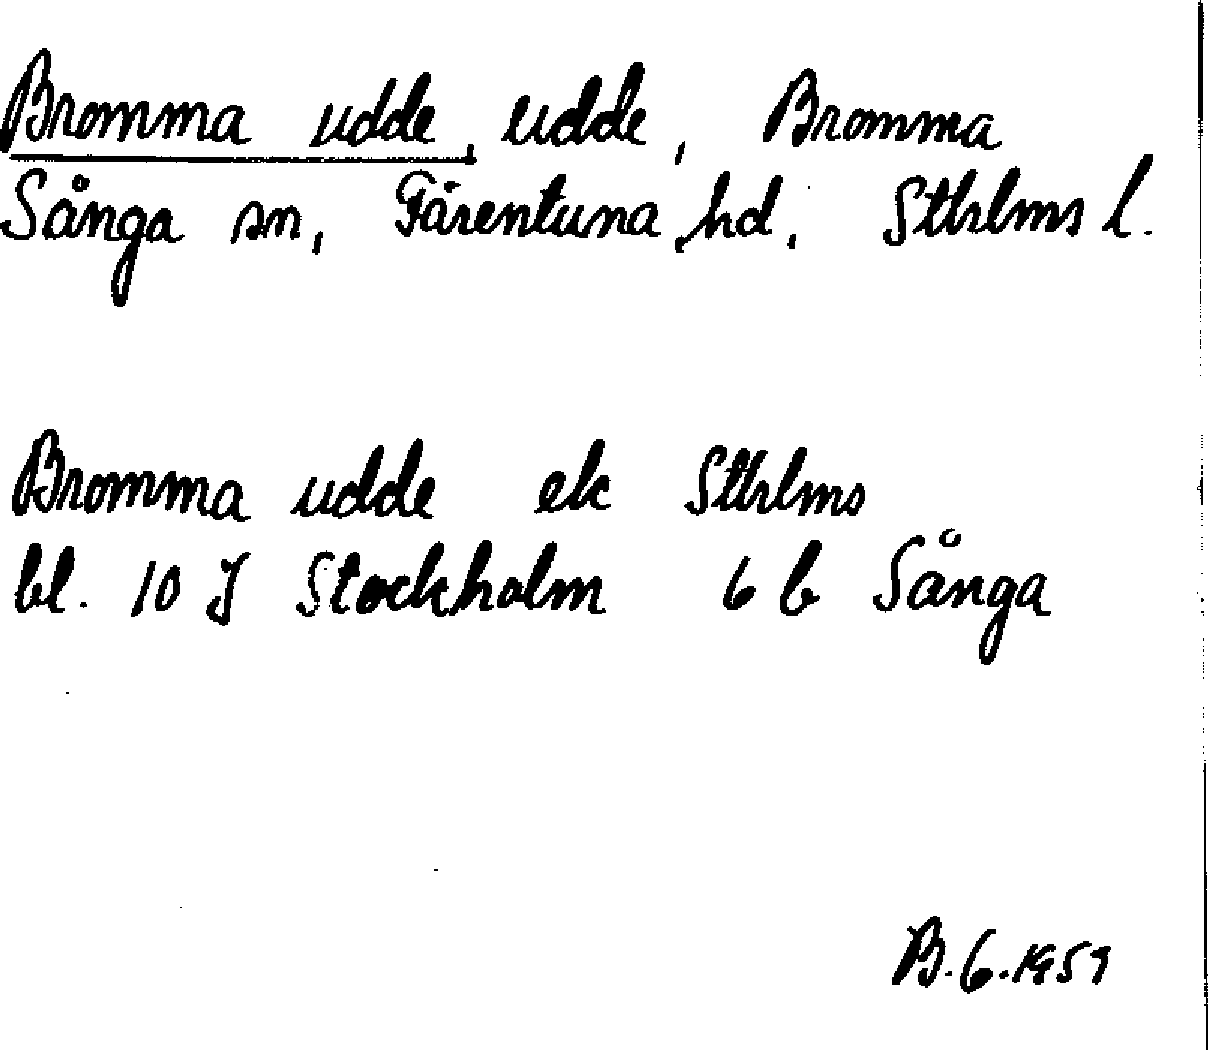 Bromma udde, udde, Bromma
Sånga sn, Färentuna hd, Sthlms l.
Bromma udde ek Sthlms
bl. 10 J Stockholm 6 b Sånga
B.G.1951